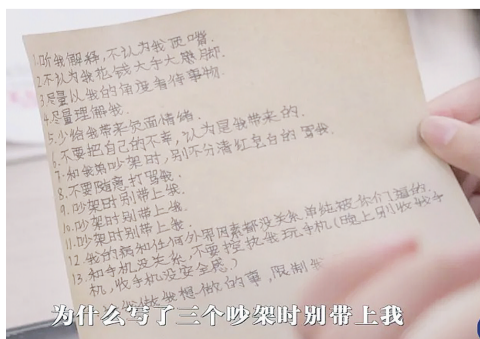 1.听我解释,不认为我顶嘴.
2.不认为我花钱大手大脚.
3.尽量以我的角度看待事物.
4.尽量理解我.
5.少给我带来负面情绪.
6.不要把自己的不幸,认为是我带来的.
7.和我弟吵架时,别不分清红皂白的骂我.
8.不要随意打骂我.
9.吵架时别带上我.
10.吵架时别带上我.
11.吵架时别带上我.
12.我的病和任何外界因素都没关系单纯被你们逼的.
13.和手机没关系,不要控制我玩手机(晚上别收我手
机,收手机没安全感.)
做我想做的事,限制我
为什么写了三个吵架时别带上我